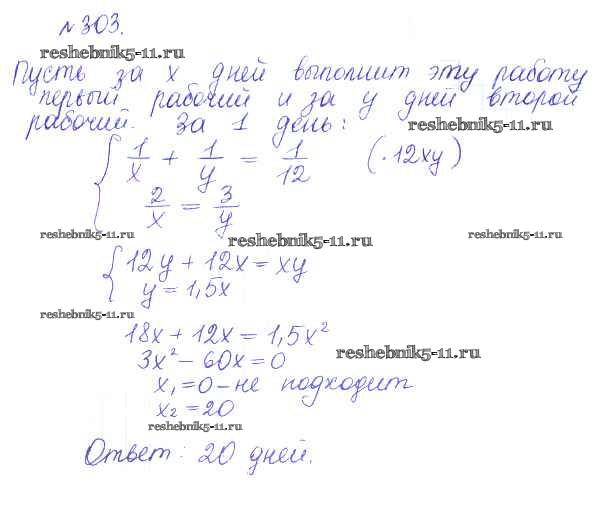 №303.
reshebnik5-11.ru
Пусть за x дней выполнит эту работу
первый рабочий и за y дней второй
рабочий. За 1 день:
reshebnik5-11.ru
1/x + 1/y = 1/12 (·12xy)
2/x = 3/y
reshebnik5-11.ru
reshebnik5-11.ru
reshebnik5-11.ru
12y + 12x = xy
y = 1,5x
reshebnik5-11.ru
18x + 12x = 1,5x²
3x² − 60x = 0
reshebnik5-11.ru
x₁ = 0 – не подходит
x₂ = 20
reshebnik5-11.ru
Ответ: 20 дней.